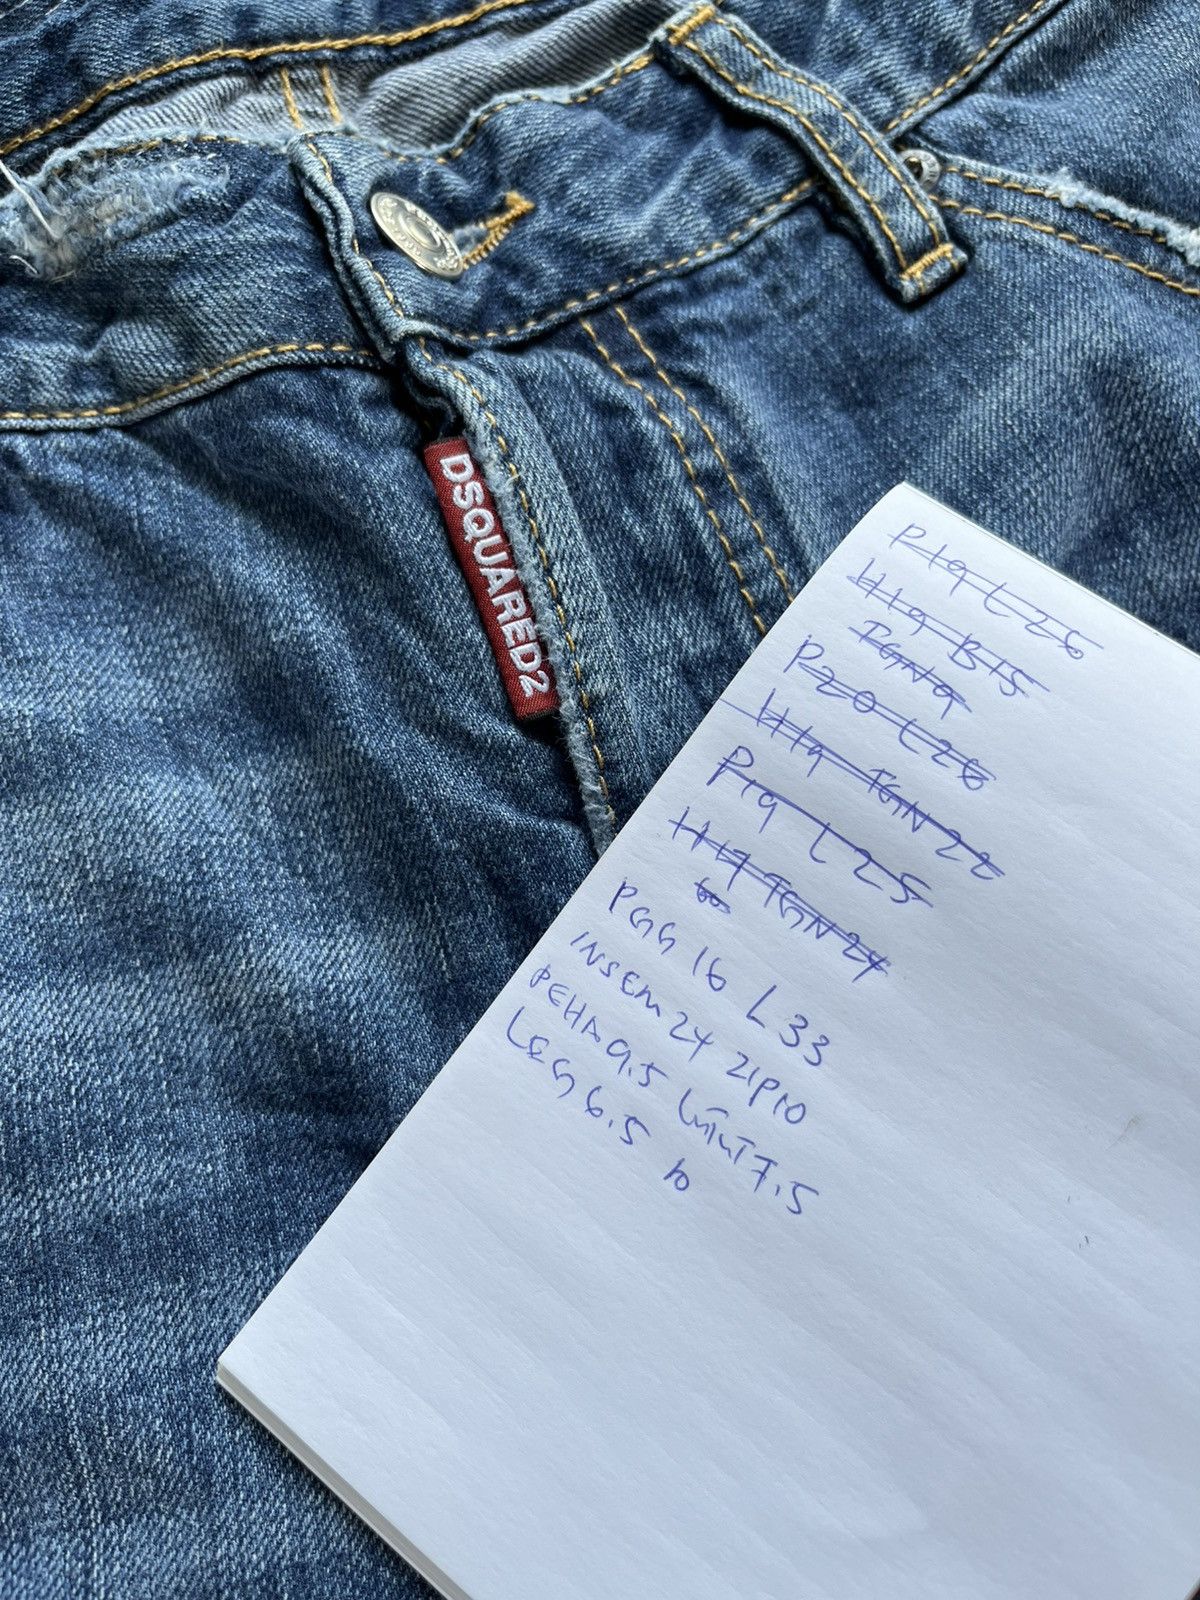 DSQUARED2
P19 L26
H19 B15
TGN9
P20 L26
H19 TGN 22
P19 L25
H19 TGN 24
PGG 16 L 33
INSEM 24 ZIP 10
PEHA 9.5 LUTUT 7.5
LEG 6.5